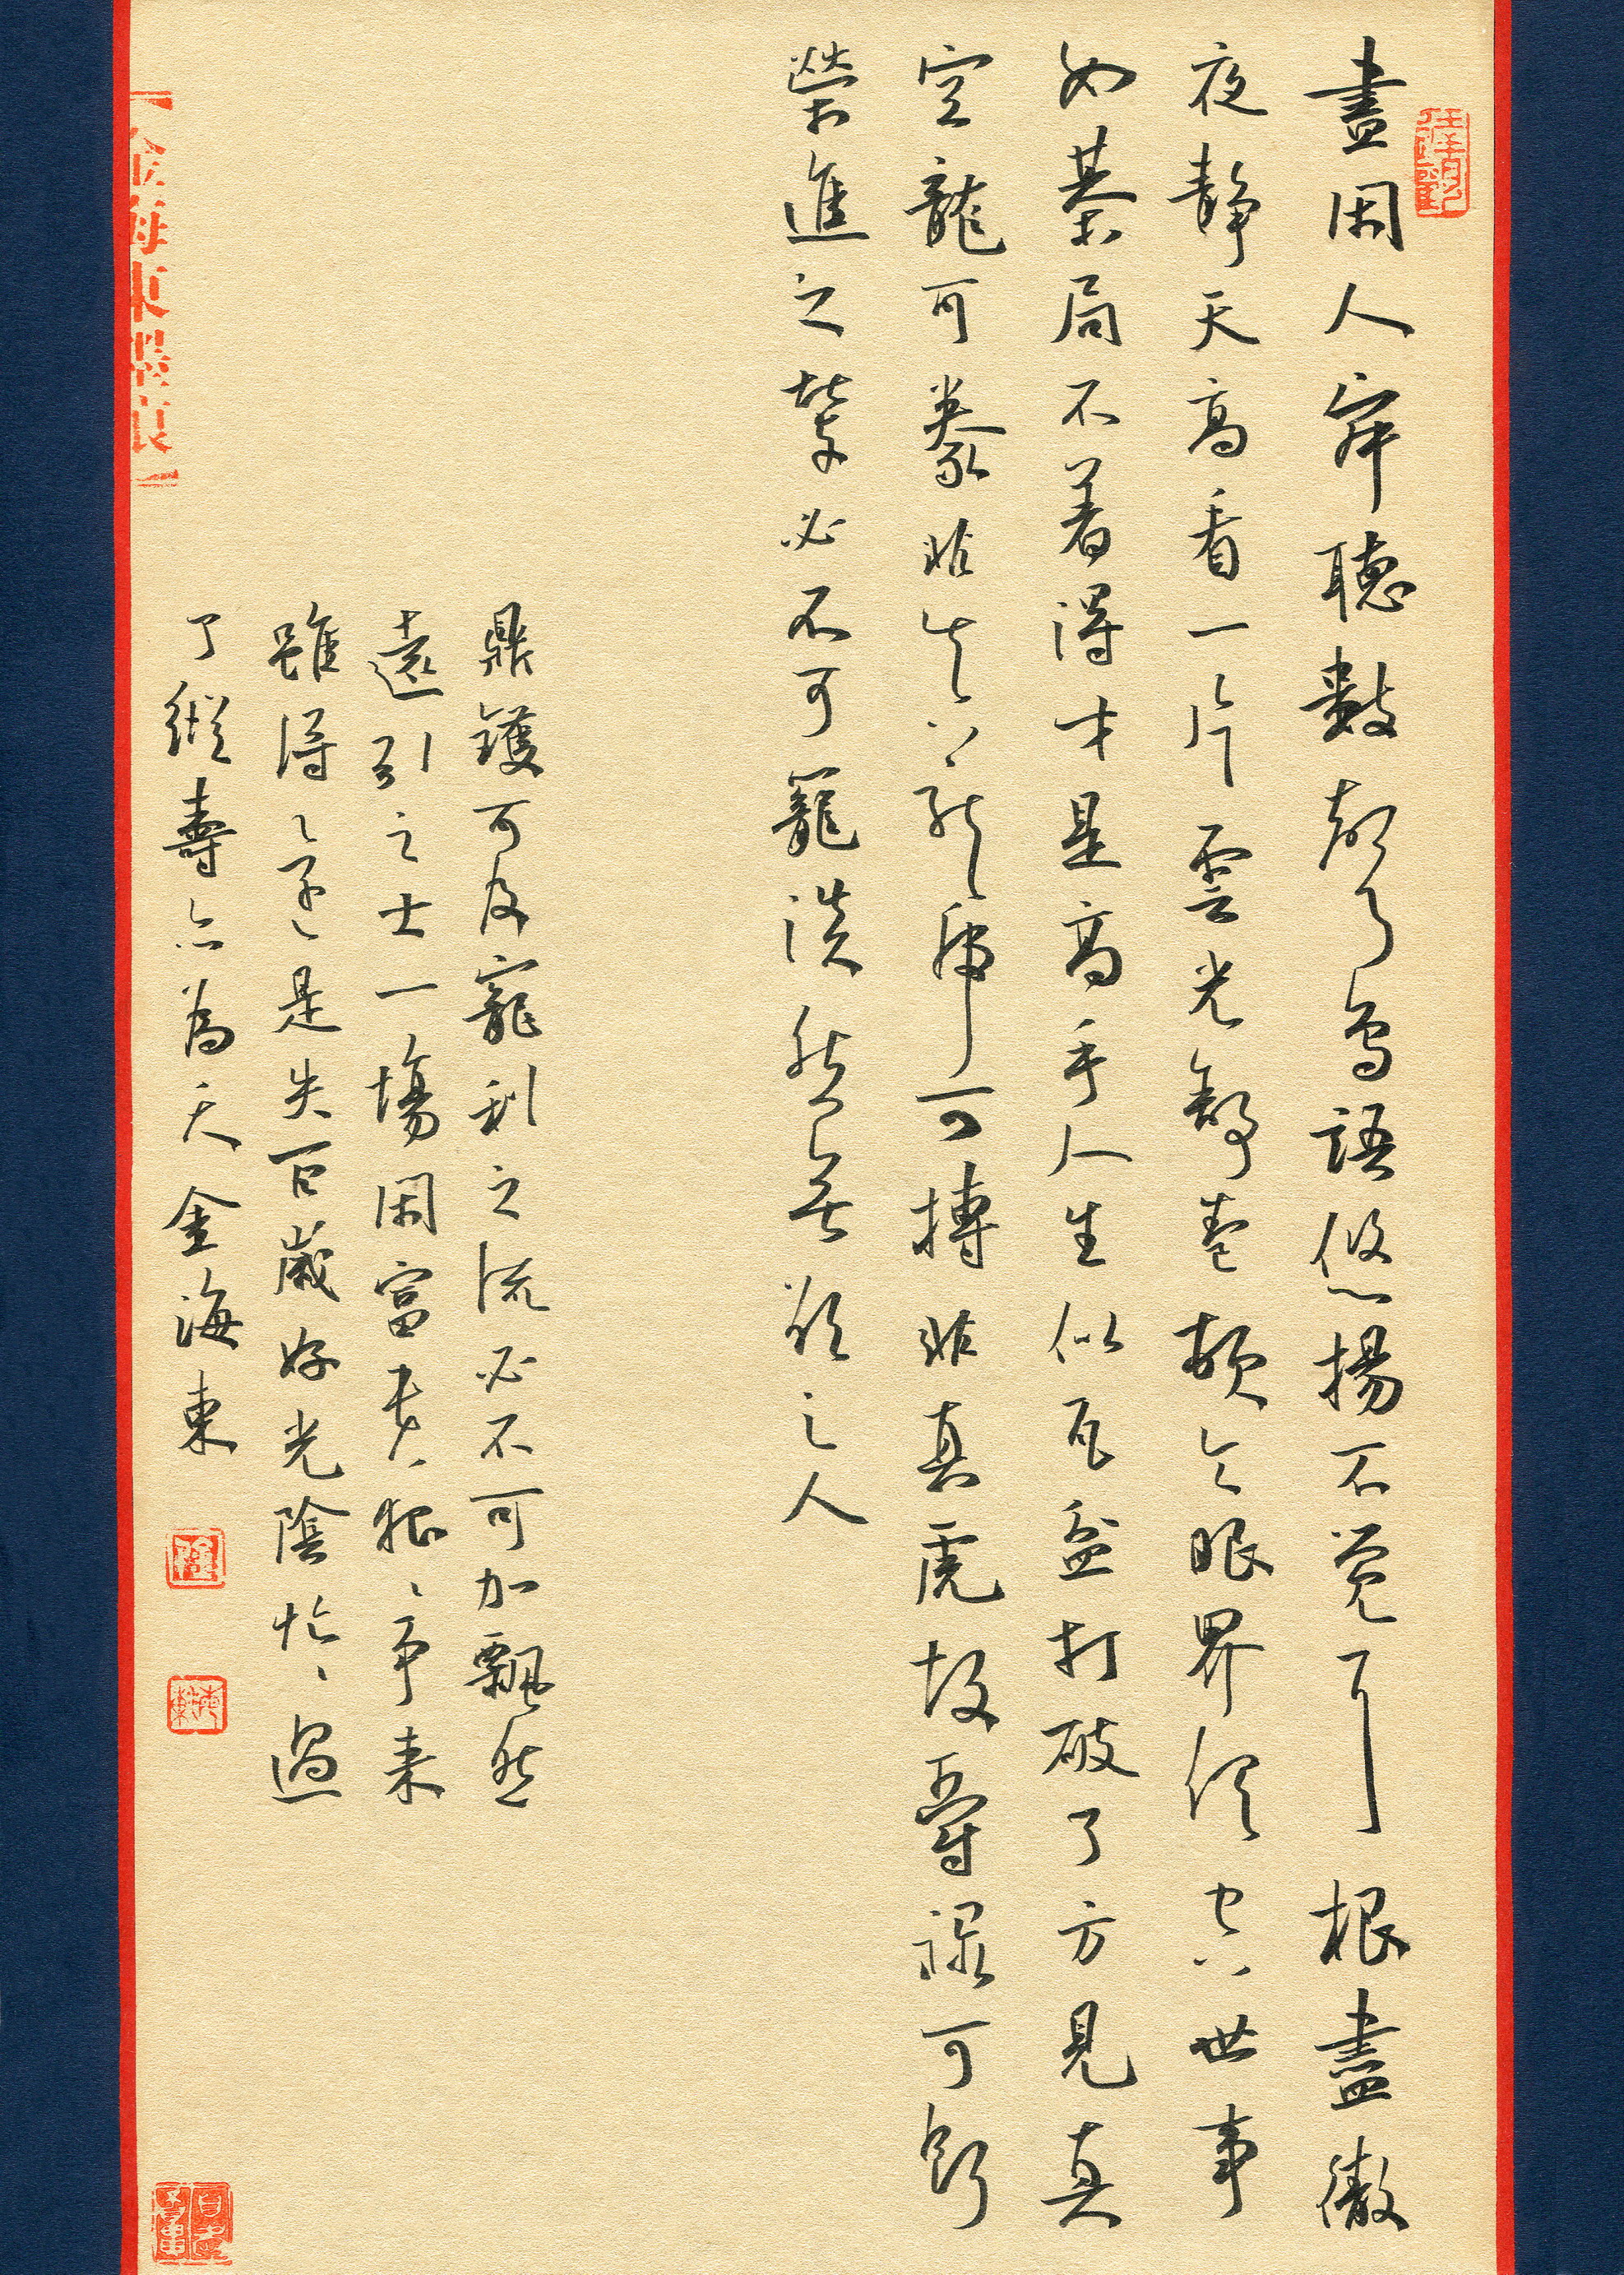 晝閑人寂聽數聲鳥語悠揚不覺耳根盡徹
夜靜天高看一片雲光舒卷頓令眼界俱空世事
如棊局不着得才是高手人生似瓦盆打破了方見真
空龍可豢非真龍虎可搏非真虎故爵祿可餌
榮進之輩必不可籠淡然無欲之人
鼎鑊可及寵利之流必不可加飄然
遠引之士一場閑富貴狠、爭来
雖得還是失百歲好光陰忙、過
了縱壽亦為夭金海東
金海東墨痕